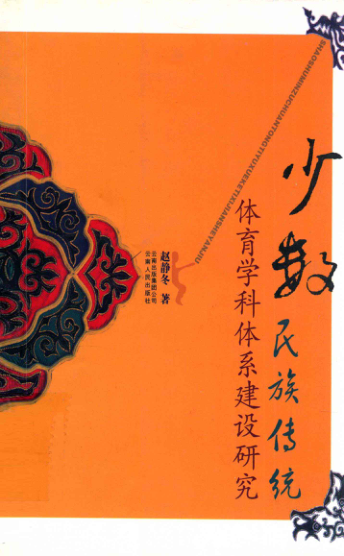 SHAOSHUMINZUCHUANTONGTIYUXUEKETIXIJIANSHEYANJIU
少数民族传统
体育学科体系建设研究
赵静冬 著
云南出版集团公司
云南人民出版社